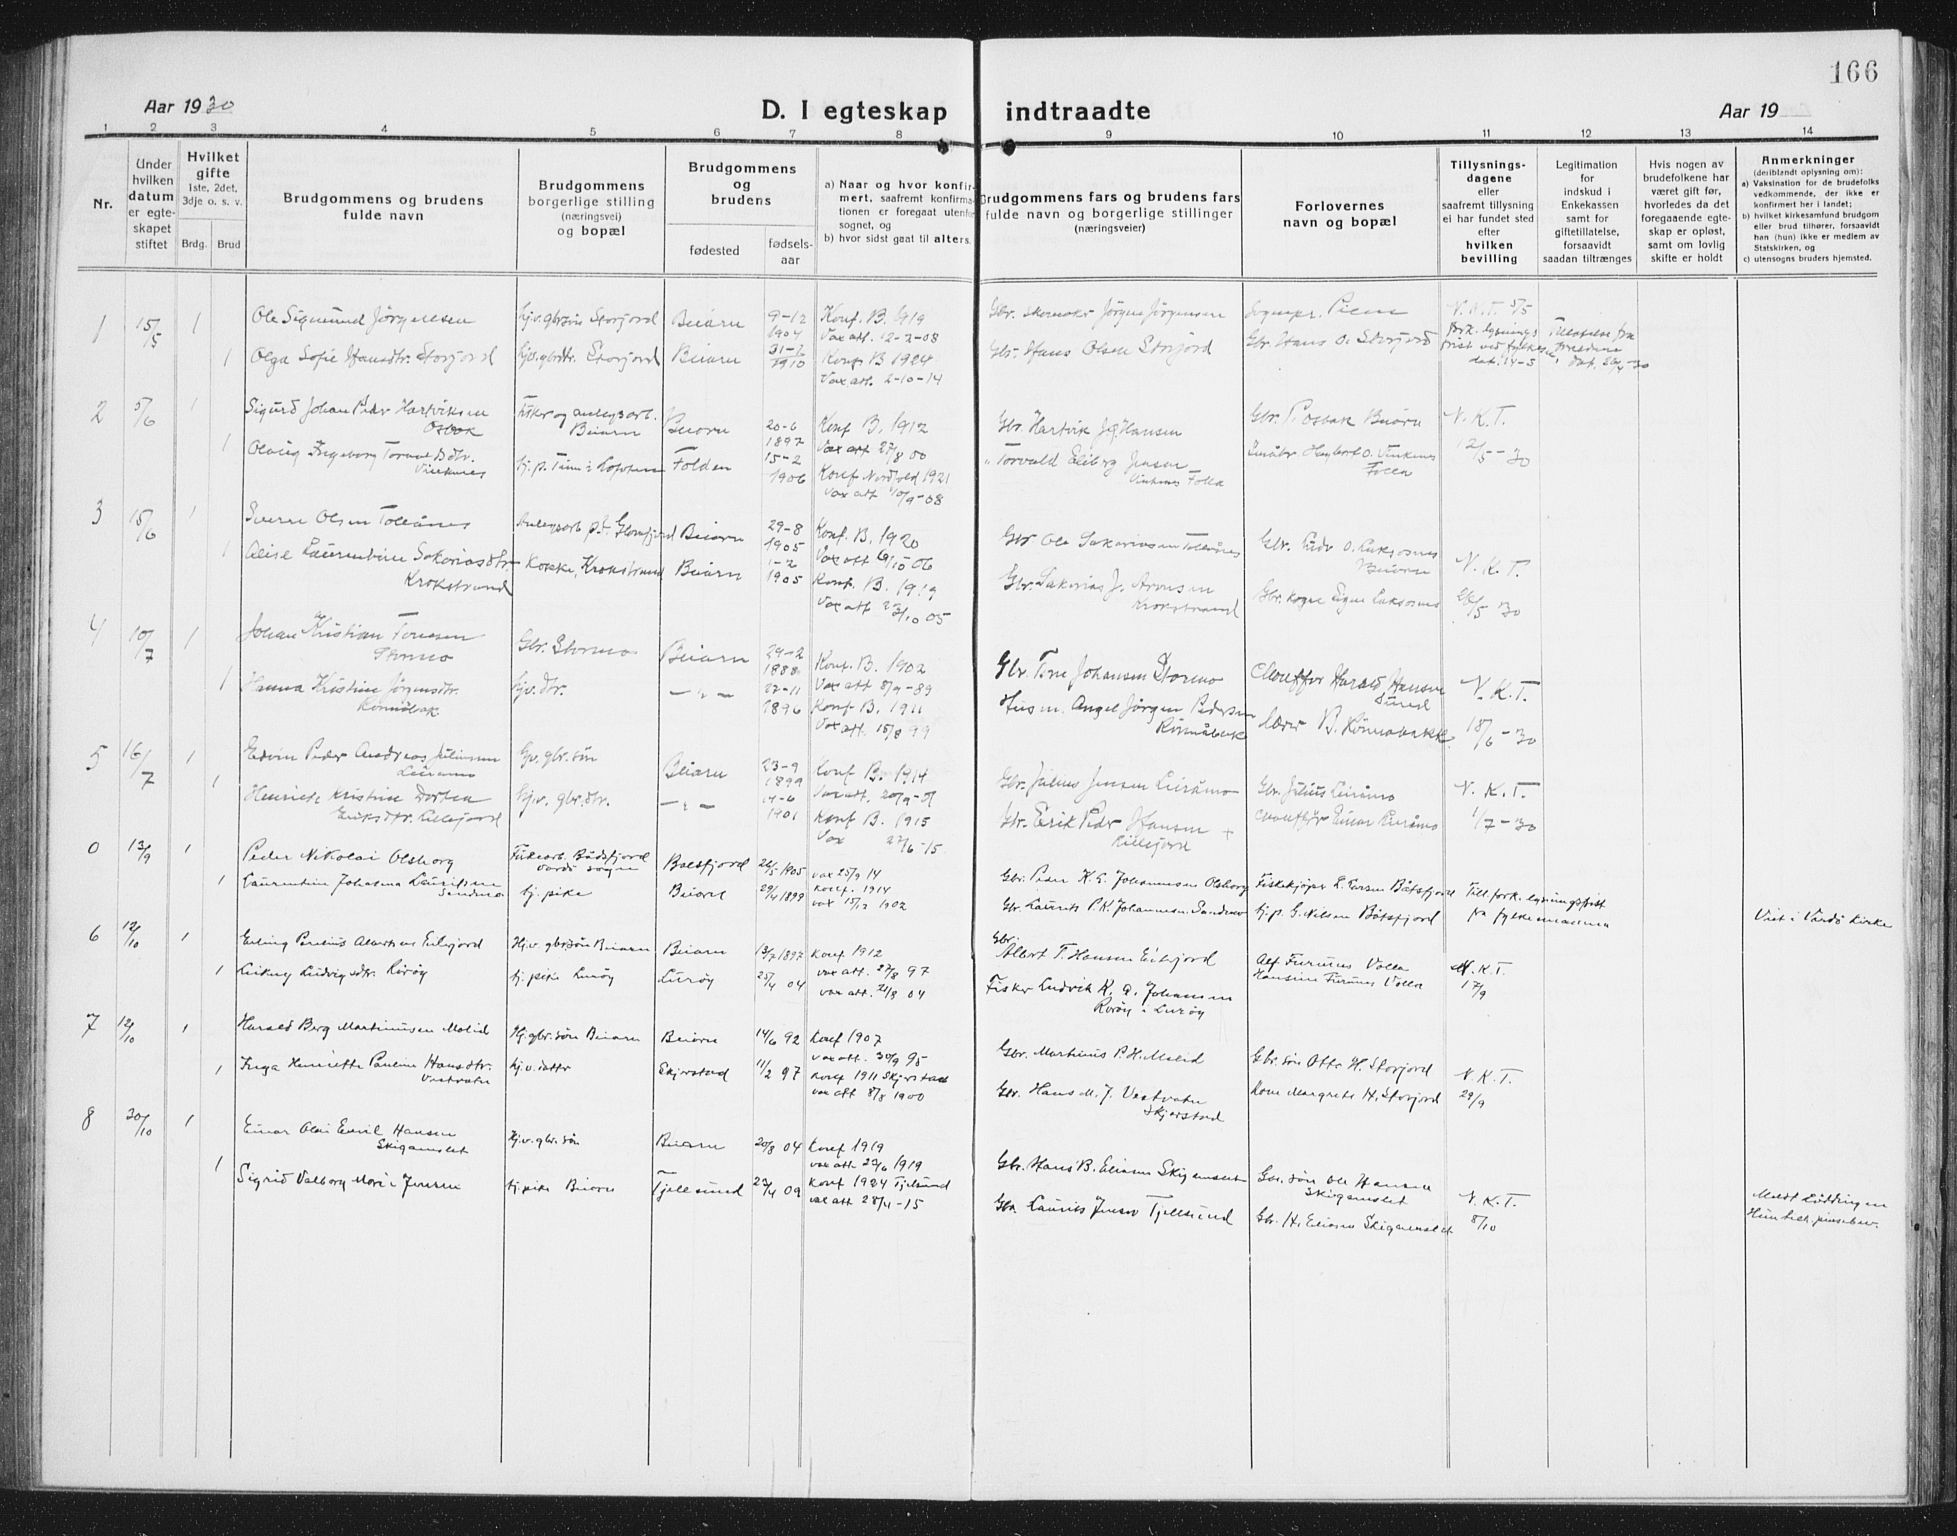 166
Aar 1930
D. I egteskap indtraadte
Aar 19
1 2 3 4 5 6 7 8 9 10 11 12 13 14
Nr.
Under hvilken datum er egteskapet stiftet
Hvilket gifte
1ste, 2det, 3dje o. s. v.
Brdg. Brud
Brudgommens og brudens fulde navn
Brudgommens borgerlige stilling (næringsvei) og bopæl
Brudgommens og brudens
fødested
fødselsaar
a) Naar og hvor konfirmert, saafremt konfirmationen er foregaat utenfor sognet, og
b) hvor sidst gaat til alters.
Brudgommens fars og brudens fars fulde navn og borgerlige stillinger (næringsveier)
Forlovernes navn og bopæl
Tillysningsdagene eller saafremt tillysning ei har fundet sted efter hvilken bevilling
Legitimation for indskud i Enkekassen samt for giftetillatelse, forsaavidt saadan tiltrænges
Hvis nogen av brudefolkene har været gift før, hvorledes da det foregaaende egteskap er opløst, samt om lovlig skifte er holdt
Anmerkninger
(deriblandt oplysning om):
a) Vaksination for de brudefolks vedkommende, der ikke er konfirmert her i landet;
b) hvilket kirkesamfund brudgom eller brud tilhører, forsaavidt han (hun) ikke er medlem av Statskirken, og
c) utensogns bruders hjemsted.
1 15/5 1 Ole Sigmund Jörgensen hjv. gbrsön Storjord Beiarn 9-12 1904 Konf. B. 1919 Vax att. 12-2-08 Gbr. Skomaker Jörgen Jörgensen Sognepr. N.K.T. 5/5
1 Olga Sofie Hansdtr. Storjord hjv. gbrdtr. Storjord Beiarn 1910 Konf. B 1924 Vax att. 2-10-14 Gbr. Hans Olsen Storjord Gbr. Hans O. Storjord
2 5/6 1 Sigurd Johan Peder Hartviksen Osbak Fisker og anlegsarb. Beiarn Beiarn 20-6 1897 Konf B. 1912 Vax att 27/8 00 Gbr. Hartvik J. Hansen Gbr. P. Osbak Beiarn N.K.T.
1 Olaug Ingeborg Torvaldsdtr. Vinknes Folden 15-2 1906 Konf Nordfold 1921 Vax att 10/9-08 Torvald Eliberg Jensen Vinknes Folla 12/5-30
3 15/6 1 Sverre Olsen Tollånes Anlegsarb. p.t. Glomfjord Beiarn 29-8 1905 Konf. B. 1920 Vax att 6/10-06 Gbr Ole Sakariassen Tollånes Beiarn N.K.T.
1 Alise Laurentine Sakariasdtr. Krokstrand Kokke, Krokstrand Beiarn 1-2 1905 Konf. B. 1919 Vax att 23/10 05 Gbr. Sakarias J. Aronsen Krokstrand 26/5 30
4 10/7 1 Johan Kristian Tonesen Stormo Gbr. Stormo Beiarn 29-2 1888 Konf. B. 1902 Vax att 8/9-89 Gbr. Tone Johansen Stormo Harald Hansen N.K.T.
1 Hanna Kristine Jörgensdtr. Rönnåbak hjv. dtr. — „ — 22-11 1896 Konf B. 1911 Vax att. 15/8 99 Husm. Angel Jörgen Pedersen Rönnåbak Lærer B. Rönnobakk 18/6-30
5 16/7 1 Edvin Peder Andreas Juliussen Leiråmo Gv. gbr. sön Beiarn 23-9 1899 Konf B. 1914 Vax att. 20/9-01 Gbr. Julius Jensen Leiråmo Gbr. Julius Leiråmo N.K.T.
1 Henriette Kristine Dortea Eriksdtr. Lillejord hjv. gbr. dtr. — „ — 14-6 1901 Konf B. 1915 Vax 27/6-15 Gbr. Erik Peder Hansen + Lillejord Einar Leiråmo 1/7-30
0 13/9 1 Peder Nikolai Olsborg Fiskearb. Båtsfjord Vardö sogn Balsfjord 26/5 1905 vax 25/9 14 Gbr. Peder K. E. Johannesen Olsborg Fiskekjöper L. Larsen Båtsfjord Till. fork. lysningsfrist
1 Laurentine Johanna Lauritsen Sandmo hj. pike Beiarn 29/4 1899 konf. 1914 vax 15/12 1902 Gbr. Laurits P. K. Johannesen Sandmo hj. p. G. Nilsen Båtsfjord fra fylkesmannen Viet i Vardö kirke
6 12/10 1 Erling Petrius Albertsen Eilifjord Hjv. gbrsön Beiarn Beiarn 13/7 1897 konf 1912 vax att. 27/8 97 Gbr. Albert T. Hansen Eilifjord Alf Furunes Volla N.K.T.
1 Ludvigsdtr. Lurøy hj. pike Lurøy Lurøy 25/4 04 vax att. 21/8 04 Fisker Ludvik K. A. Johansen i Lurøy Hansine Furunes Volla 17/9
7 12/10 1 Harald Berg Martinussen Molid Hj. gbr. sön Beiarn Beiarn 14/6 92 konf 1907 vax att. 30/9 95 Gbr. Martinus P. H. Molid Gbr. sön Otto H. Storjord N.K.T.
1 Inga Henriette Pauline Hansdtr. Vestvatn hj. v. datter Skjerstad 11/2 97 konf 1911 Skjerstad vax att 8/8 1900 Gbr. Hans M. J. Vestvatn Skjerstad Kone Margrete H. Storjord 29/9
8 20/10 1 Einar Olai Emil Hansen Skigamslet Hjv. gbr. sön Beiarn 20/8 04 konf 1919 vax att 23/6 1919 Gbr. Hans B. Eliasen Skigamslet Gbr. sön Ole Hansen Skigamslet N.K.T.
1 Sigrid Valborg Marie Jensen hj. pike Beiarn Tjeldsund 23/4 09 konf 1924 Tjelsund vax att 28/4-15 Gbr. Laurits Jensen Tjeldsund Gbr. H. Eliasen Skigamslet 8/10 Meldt Lödingen